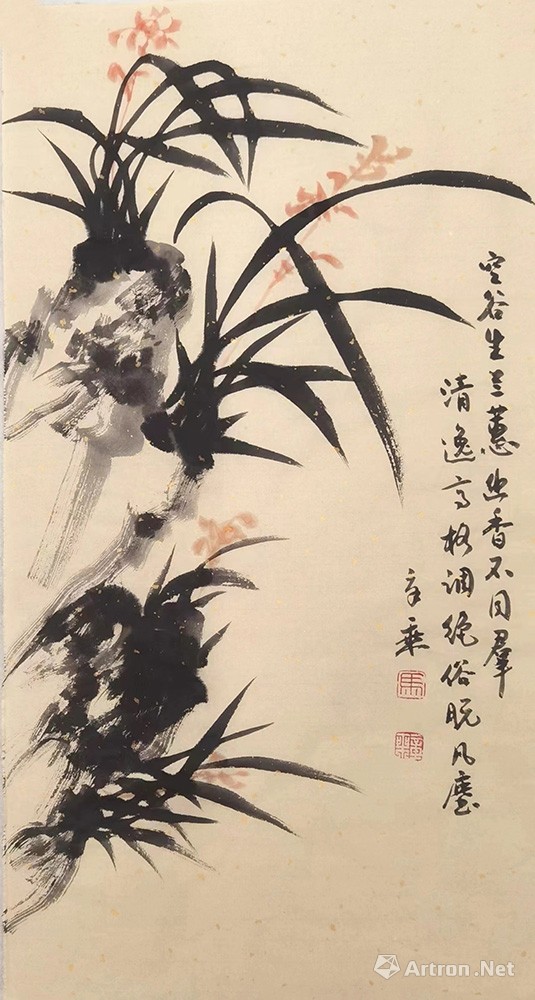 空谷生兰蕙幽香不同羣
清逸高格调绝俗脱凡塵
章乘
馬
Artron.Net